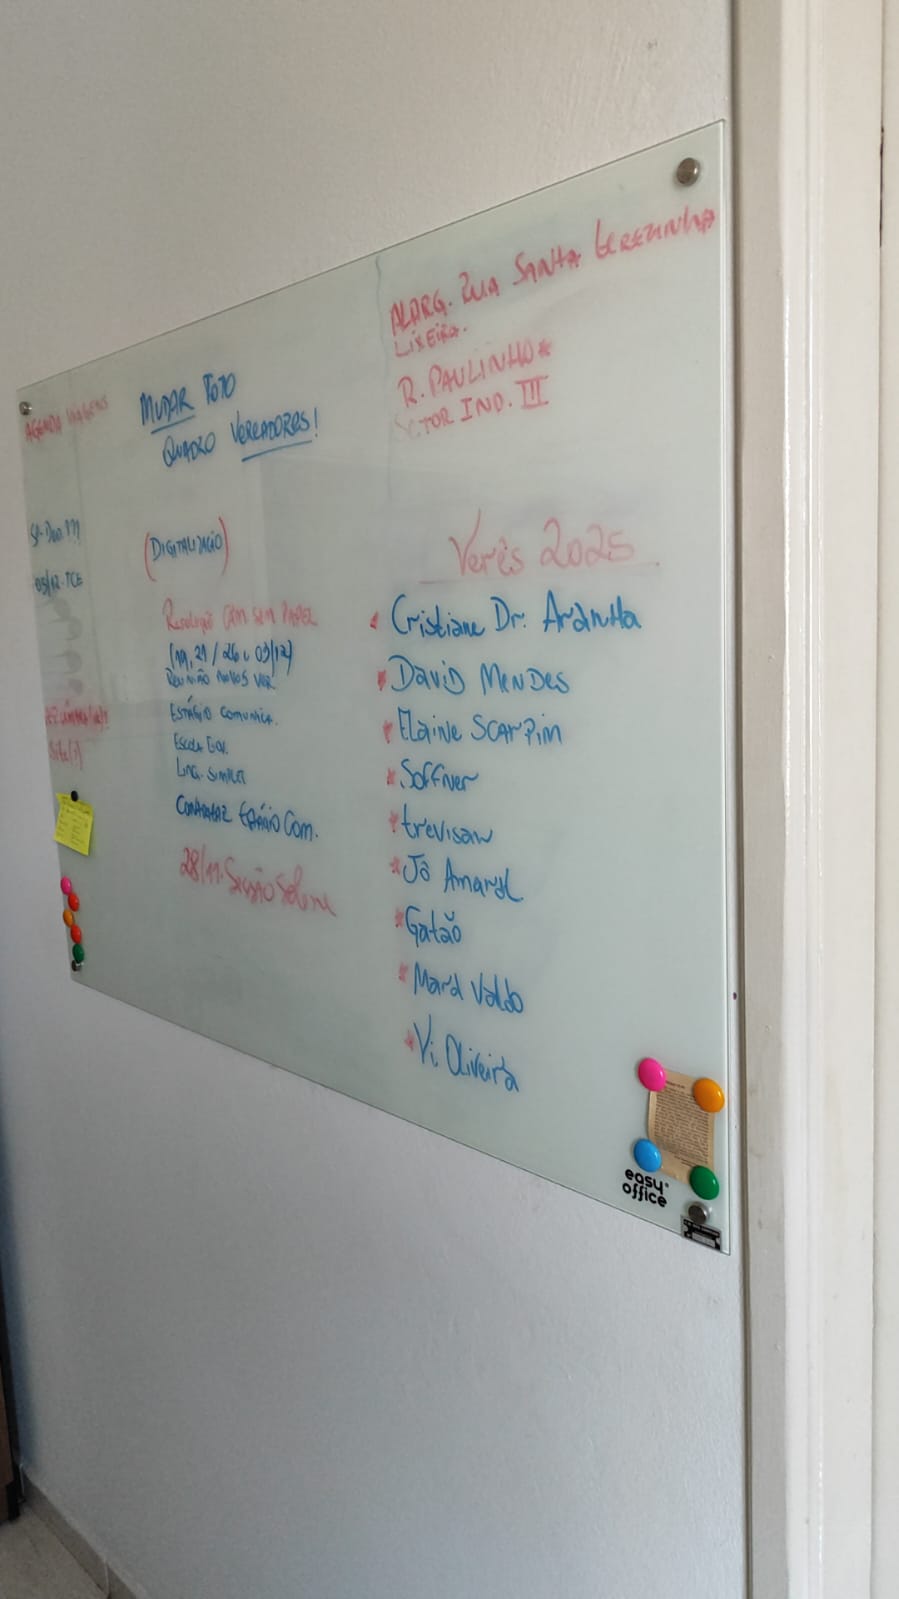 AGENDA VIAGENS
05/12. TCE
Site(?)
MUDAR FOTO
QUADRO VEREADORES!
(DIGITALIZAÇÃO)
Resolução CAM SEM PAPEL
(19, 21 / 26 e 03/12)
REUNIÃO NOVOS VER
ESTÁGIO COMUNICA.
LING. SIMPLES
CONTRATAR ESTÁGIO COM.
28/11. Sessão Solene
ALARG. RUA SANTA TEREZINHA
LIXEIRA.
R. PAULINHO*
SETOR IND. III
Verês 2025
Cristiane Dr. Aranha
DAVID MENDES
Elaine Scarpim
Soffner
trevisan
Jô Amaral
Gatão
Mara Valdo
Vi Oliveira
easy
office